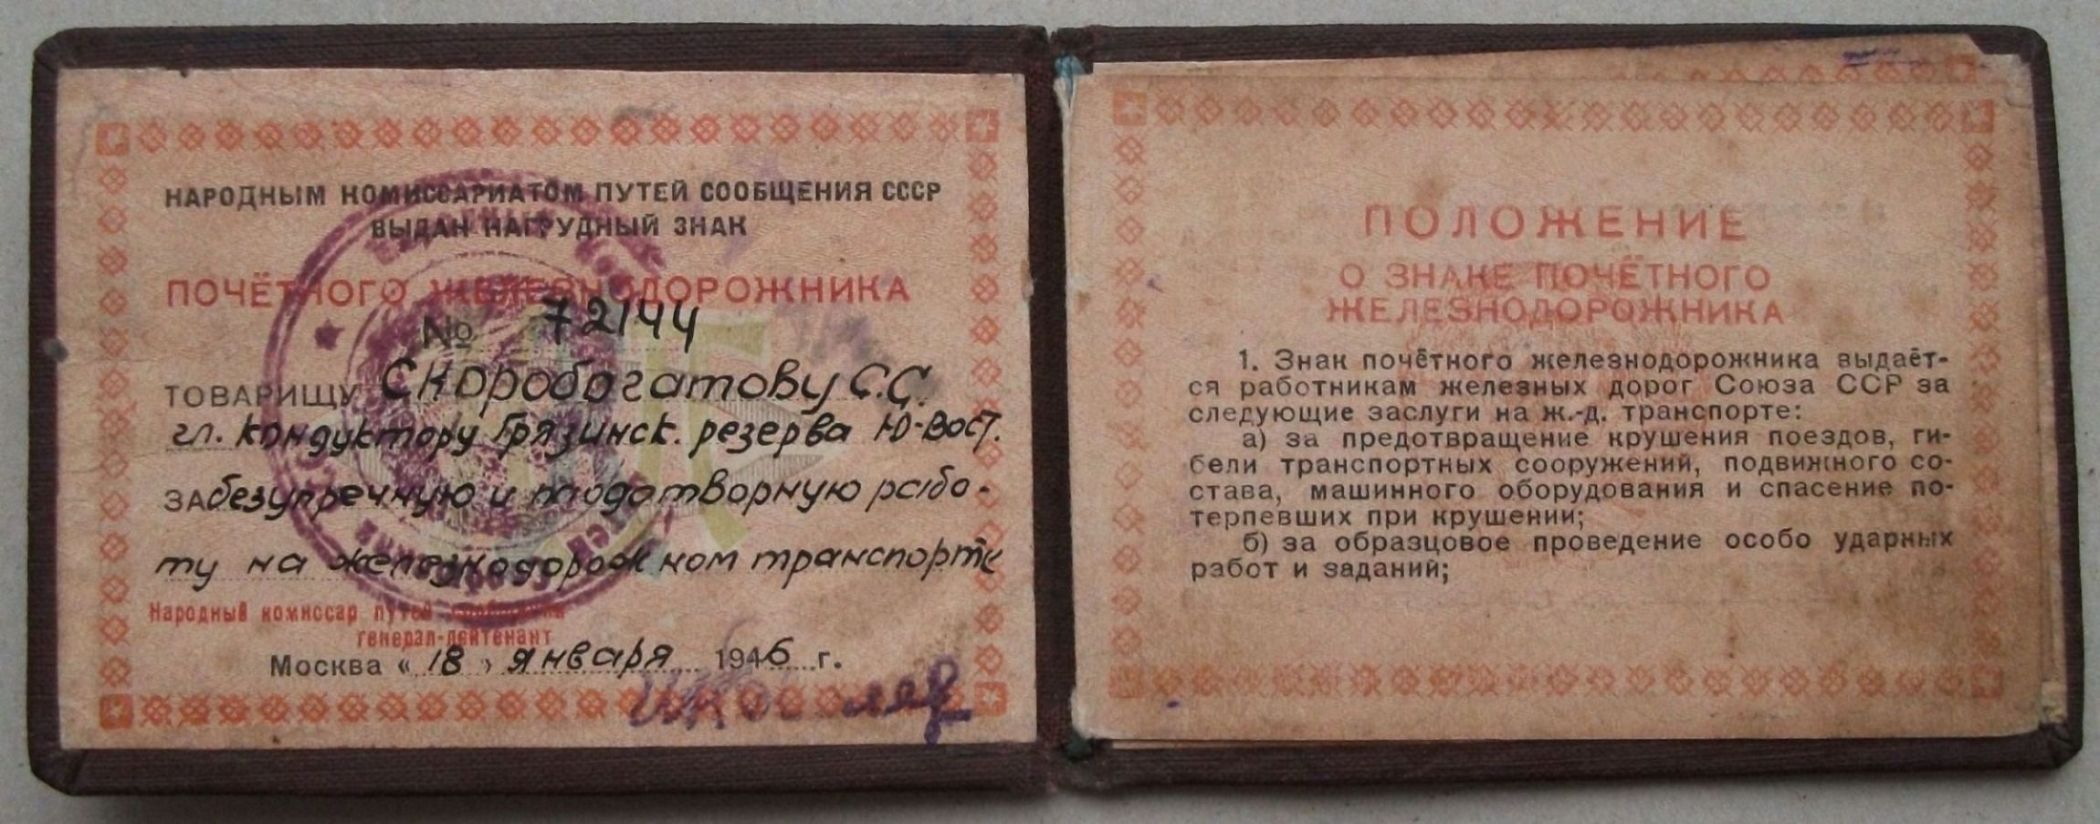 НАРОДНЫМ КОМИССАРИАТОМ ПУТЕЙ СООБЩЕНИЯ СССР
ВЫДАН НАГРУДНЫЙ ЗНАК
ПОЧЁТНОГО ЖЕЛЕЗНОДОРОЖНИКА
№ 72144
ТОВАРИЩУ Скоробогатову С.С.
гл. кондуктору Грязинск. резерва Ю-Вост.
ЗА безупречную и плодотворную рабо-
ту на железнодорожном транспорте
Народный комиссар путей сообщения
генерал-лейтенант
Москва «18» января 1946 г.
ПОЛОЖЕНИЕ
О ЗНАКЕ ПОЧЁТНОГО
ЖЕЛЕЗНОДОРОЖНИКА
1. Знак почётного железнодорожника выдаёт-
ся работникам железных дорог Союза ССР за
следующие заслуги на ж.-д. транспорте:
а) за предотвращение крушения поездов, ги-
бели транспортных сооружений, подвижного со-
става, машинного оборудования и спасение по-
терпевших при крушении;
б) за образцовое проведение особо ударных
работ и заданий;